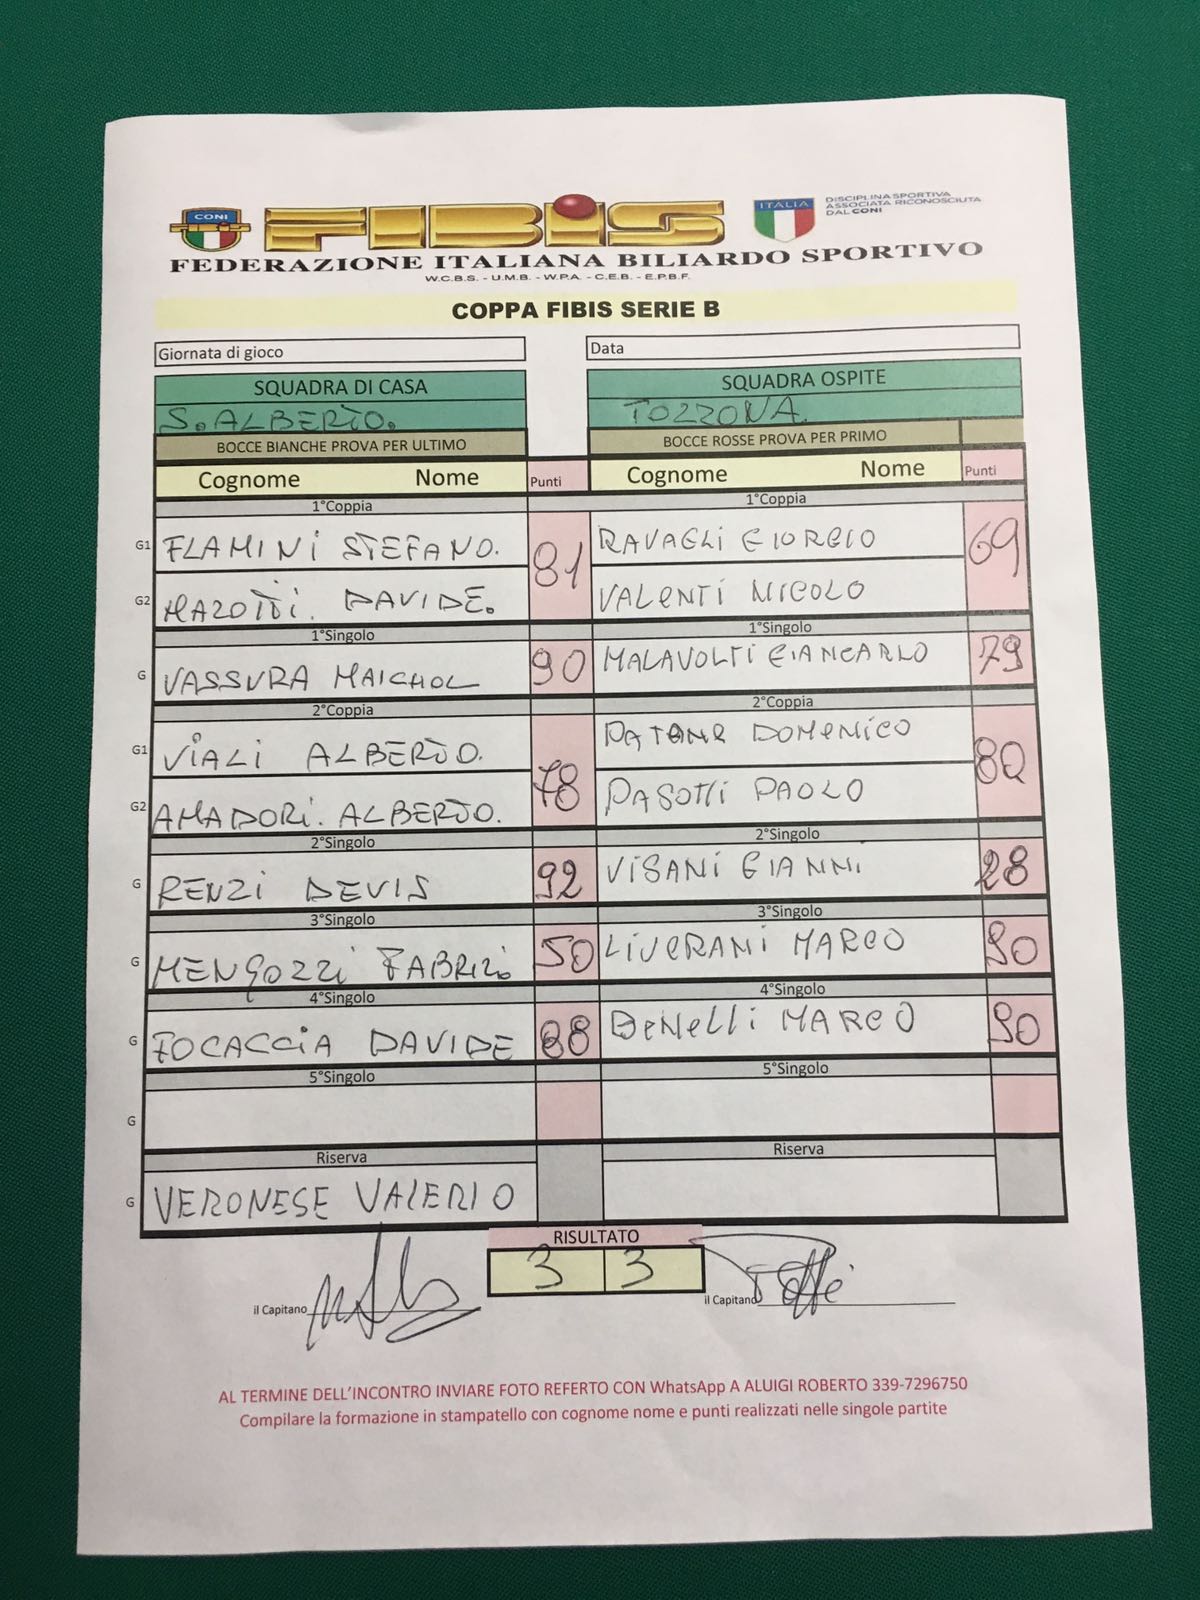 CONI
FIBIS
ITALIA
DISCIPLINA SPORTIVA
ASSOCIATA RICONOSCIUTA
DAL CONI
FEDERAZIONE ITALIANA BILIARDO SPORTIVO
W.C.B.S. - U.M.B. - W.P.A. - C.E.B. - E.P.B.F.
COPPA FIBIS SERIE B
Giornata di gioco Data
SQUADRA DI CASA SQUADRA OSPITE
S. ALBERTO. TOZZONA.
BOCCE BIANCHE PROVA PER ULTIMO BOCCE ROSSE PROVA PER PRIMO
Cognome Nome Punti Cognome Nome Punti
1°Coppia 1°Coppia
G1 FLAMINI STEFANO. 81 RAVAGLI GIORGIO 69
G2 MAZOTTI. DAVIDE. VALENTI NICOLO
1°Singolo 1°Singolo
G VASSURA MAICHOL 90 MALAVOLTI GIANCARLO 79
2°Coppia 2°Coppia
G1 VIALI ALBERTO. 78 PATANE DOMENICO 80
G2 AMADORI. ALBERTO. PASOTTI PAOLO
2°Singolo 2°Singolo
G RENZI DEVIS 92 VISANI GIANNI 28
3°Singolo 3°Singolo
G MENGOZZI FABRIZIO 50 LIVERANI MARCO 90
4°Singolo 4°Singolo
G FOCACCIA DAVIDE 88 BENELLI MARCO 90
5°Singolo 5°Singolo
G
Riserva Riserva
G VERONESE VALERIO
RISULTATO
3 3
il Capitano il Capitano
AL TERMINE DELL'INCONTRO INVIARE FOTO REFERTO CON WhatsApp A ALUIGI ROBERTO 339-7296750
Compilare la formazione in stampatello con cognome nome e punti realizzati nelle singole partite